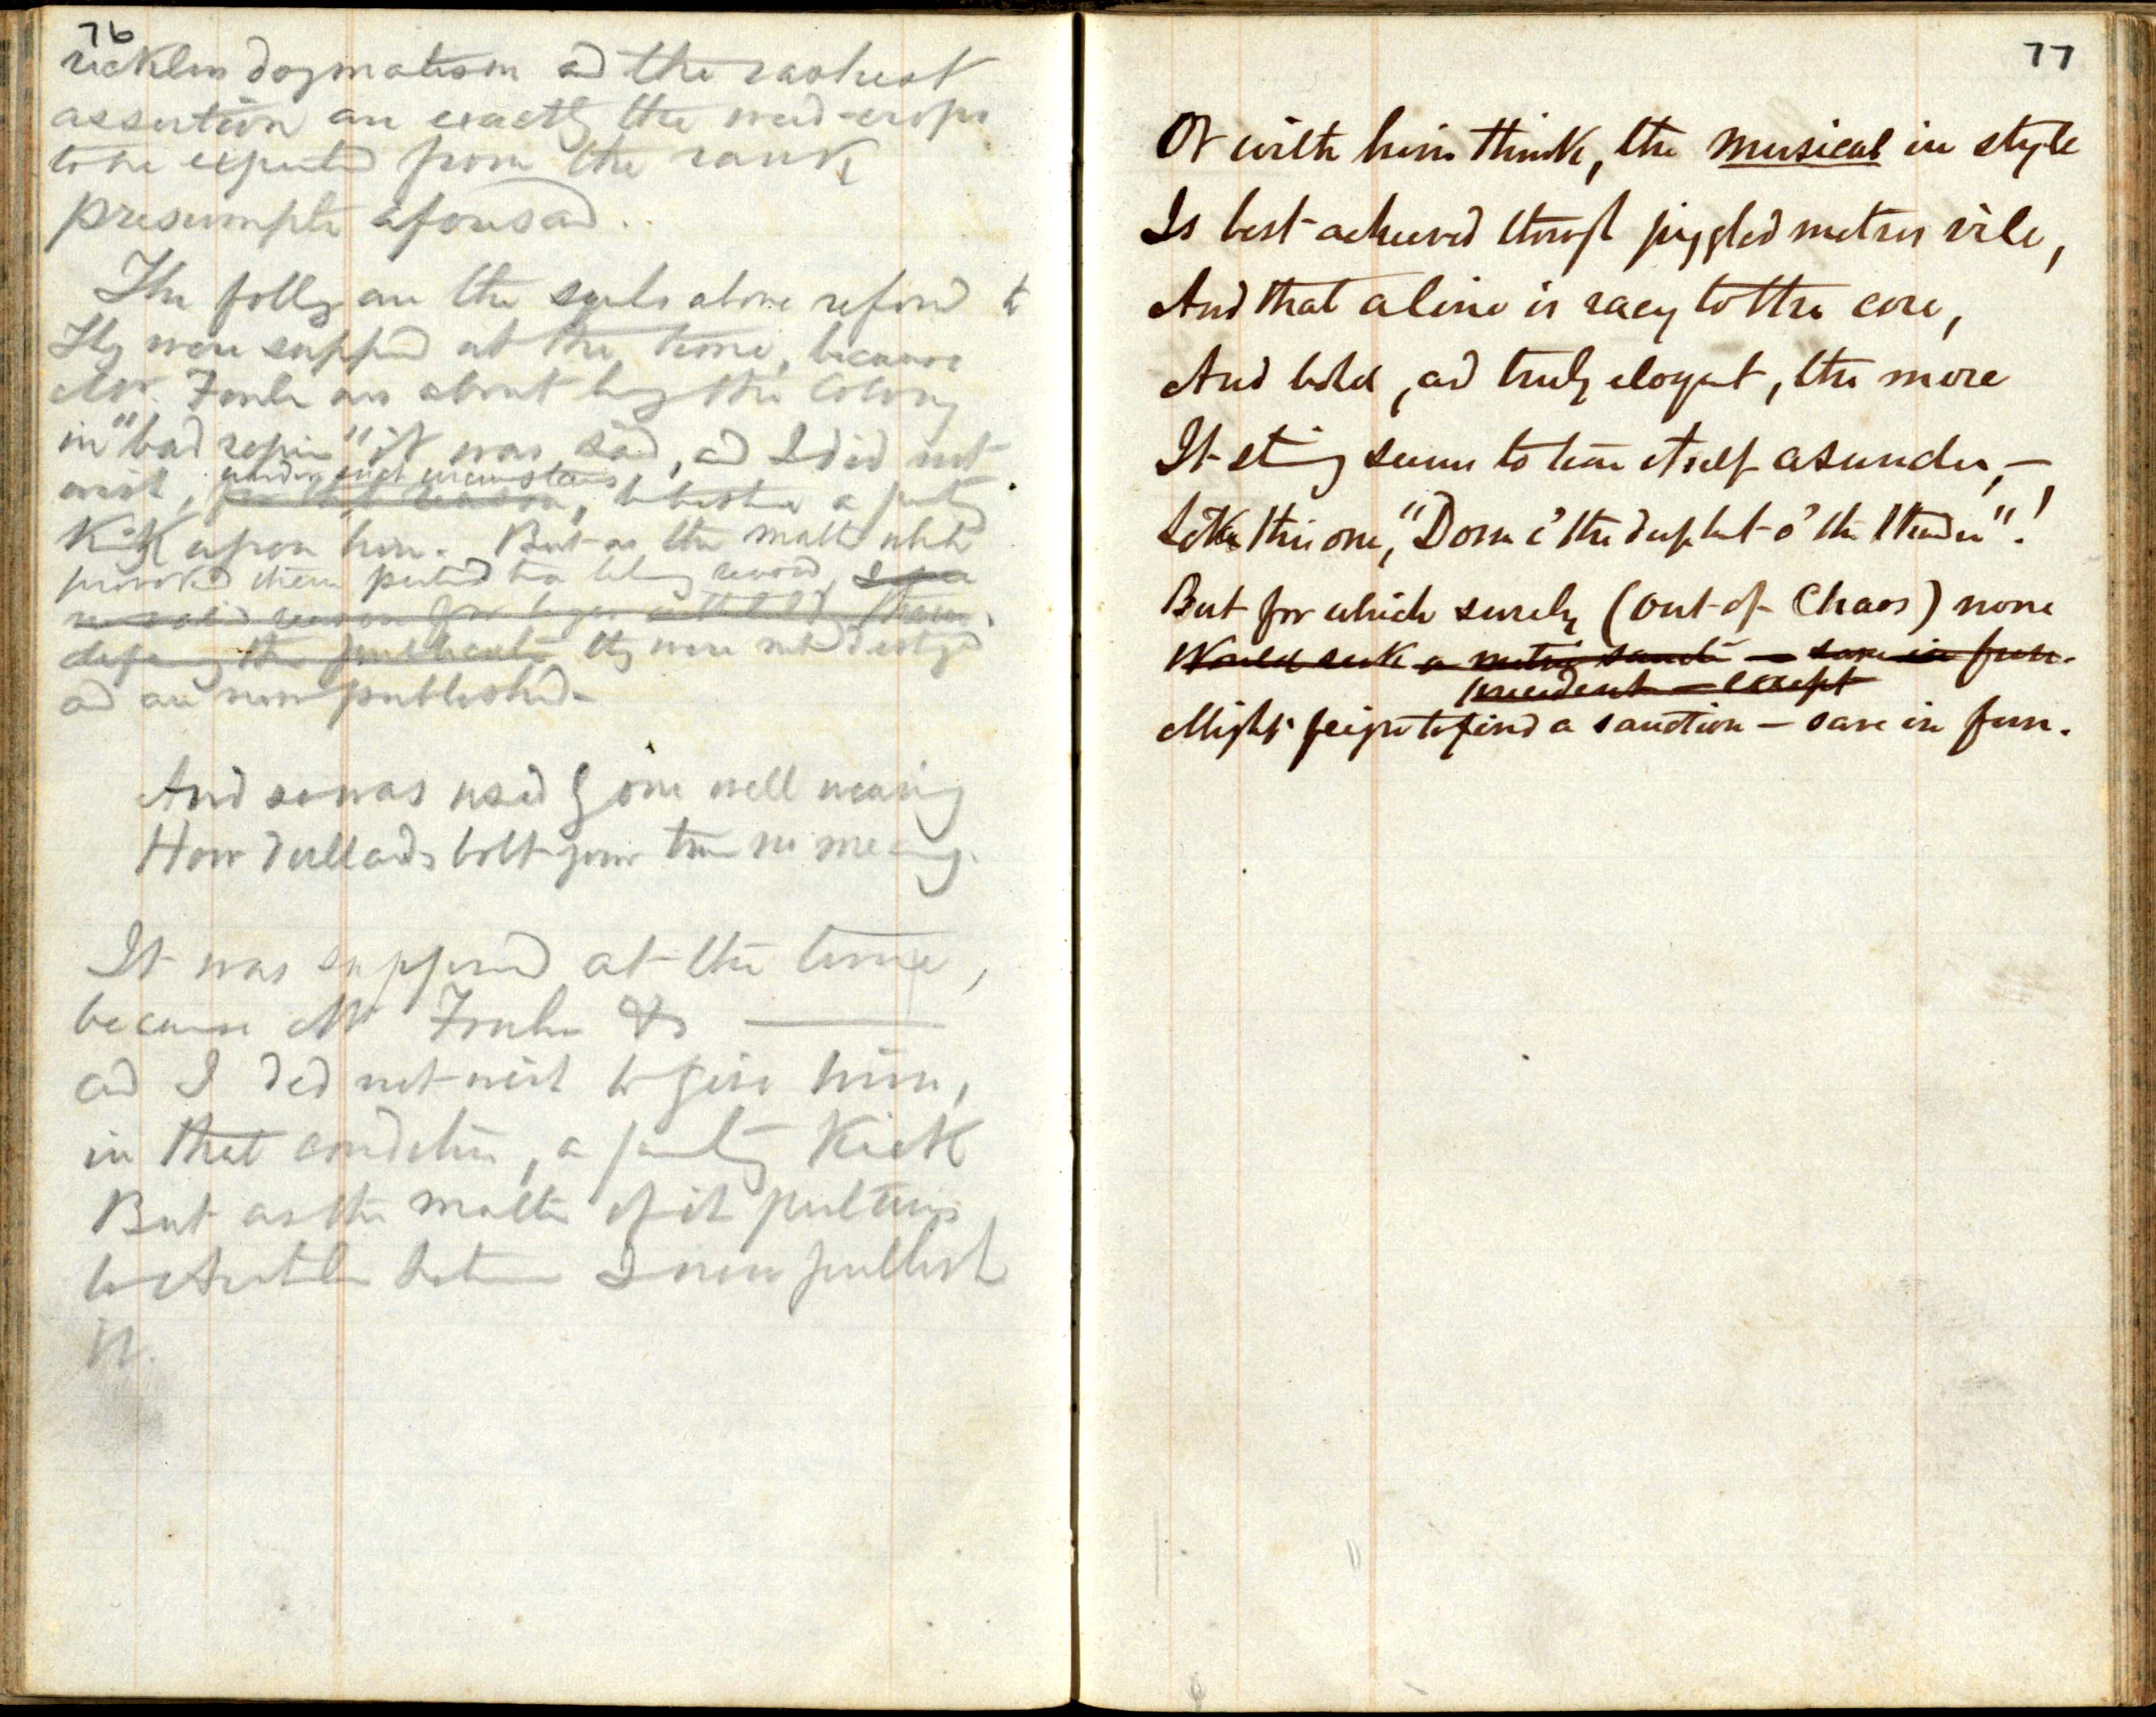 76
reckless dogmatism and the rashest
assertion are exactly the weed-crops
to be expected from the rank
presumption aforesaid.
The follg are the squibs above referred to
They were suppressed at the time, because
Mr. Fowler was about leavg the Colony
in "bad repair" it was said, and I did not
under such circumstances
wish, for that reason, to bestow a parting
Kick upon him. But as the matter which
provoked them
they were not destroyed
and are now published.
And so was used by one well meaning
How dullards bolt your true no meaning.
It was suppressed at the time,
because Mr Fowler &c ———
and I did not wish to give him,
in that condition, a parting Kick
But as the matter of it pertains
to Australn I now publish
it.
77
Or with him think, the musical in style
Is best achieved through jiggled metres vile,
And that a line is racy to the core,
And bold, and truly eloquent, the more
It strivg seems to tear itself asunder,—
Like this one, "Down i' the deep heart o' the Thunder"!
But for which surely (out of Chaos) none
Would seek a metric sanction — save in fun.
precedent — except
Might feign to find a sanction — save in fun.